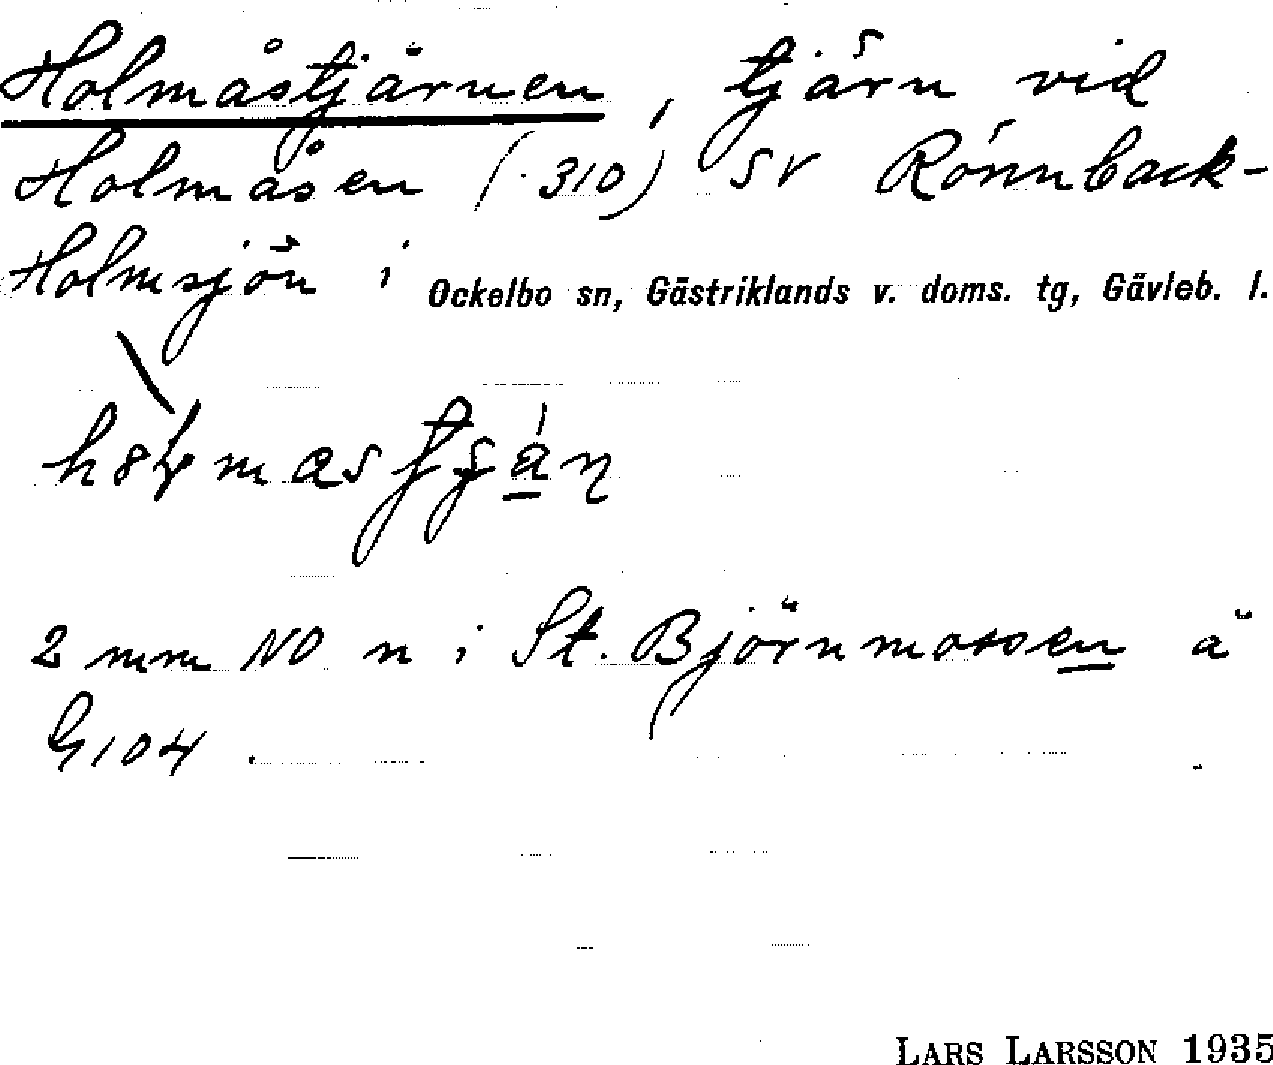 Holmåstjärnen, tjärn vid
Holmåsen (.310) SV Rönnback-
Holmsjön i Ockelbo sn, Gästriklands v. doms. tg, Gävleb. l.
2 mm NO n i St. Björnmossen å
G104.
LARS LARSSON 1935